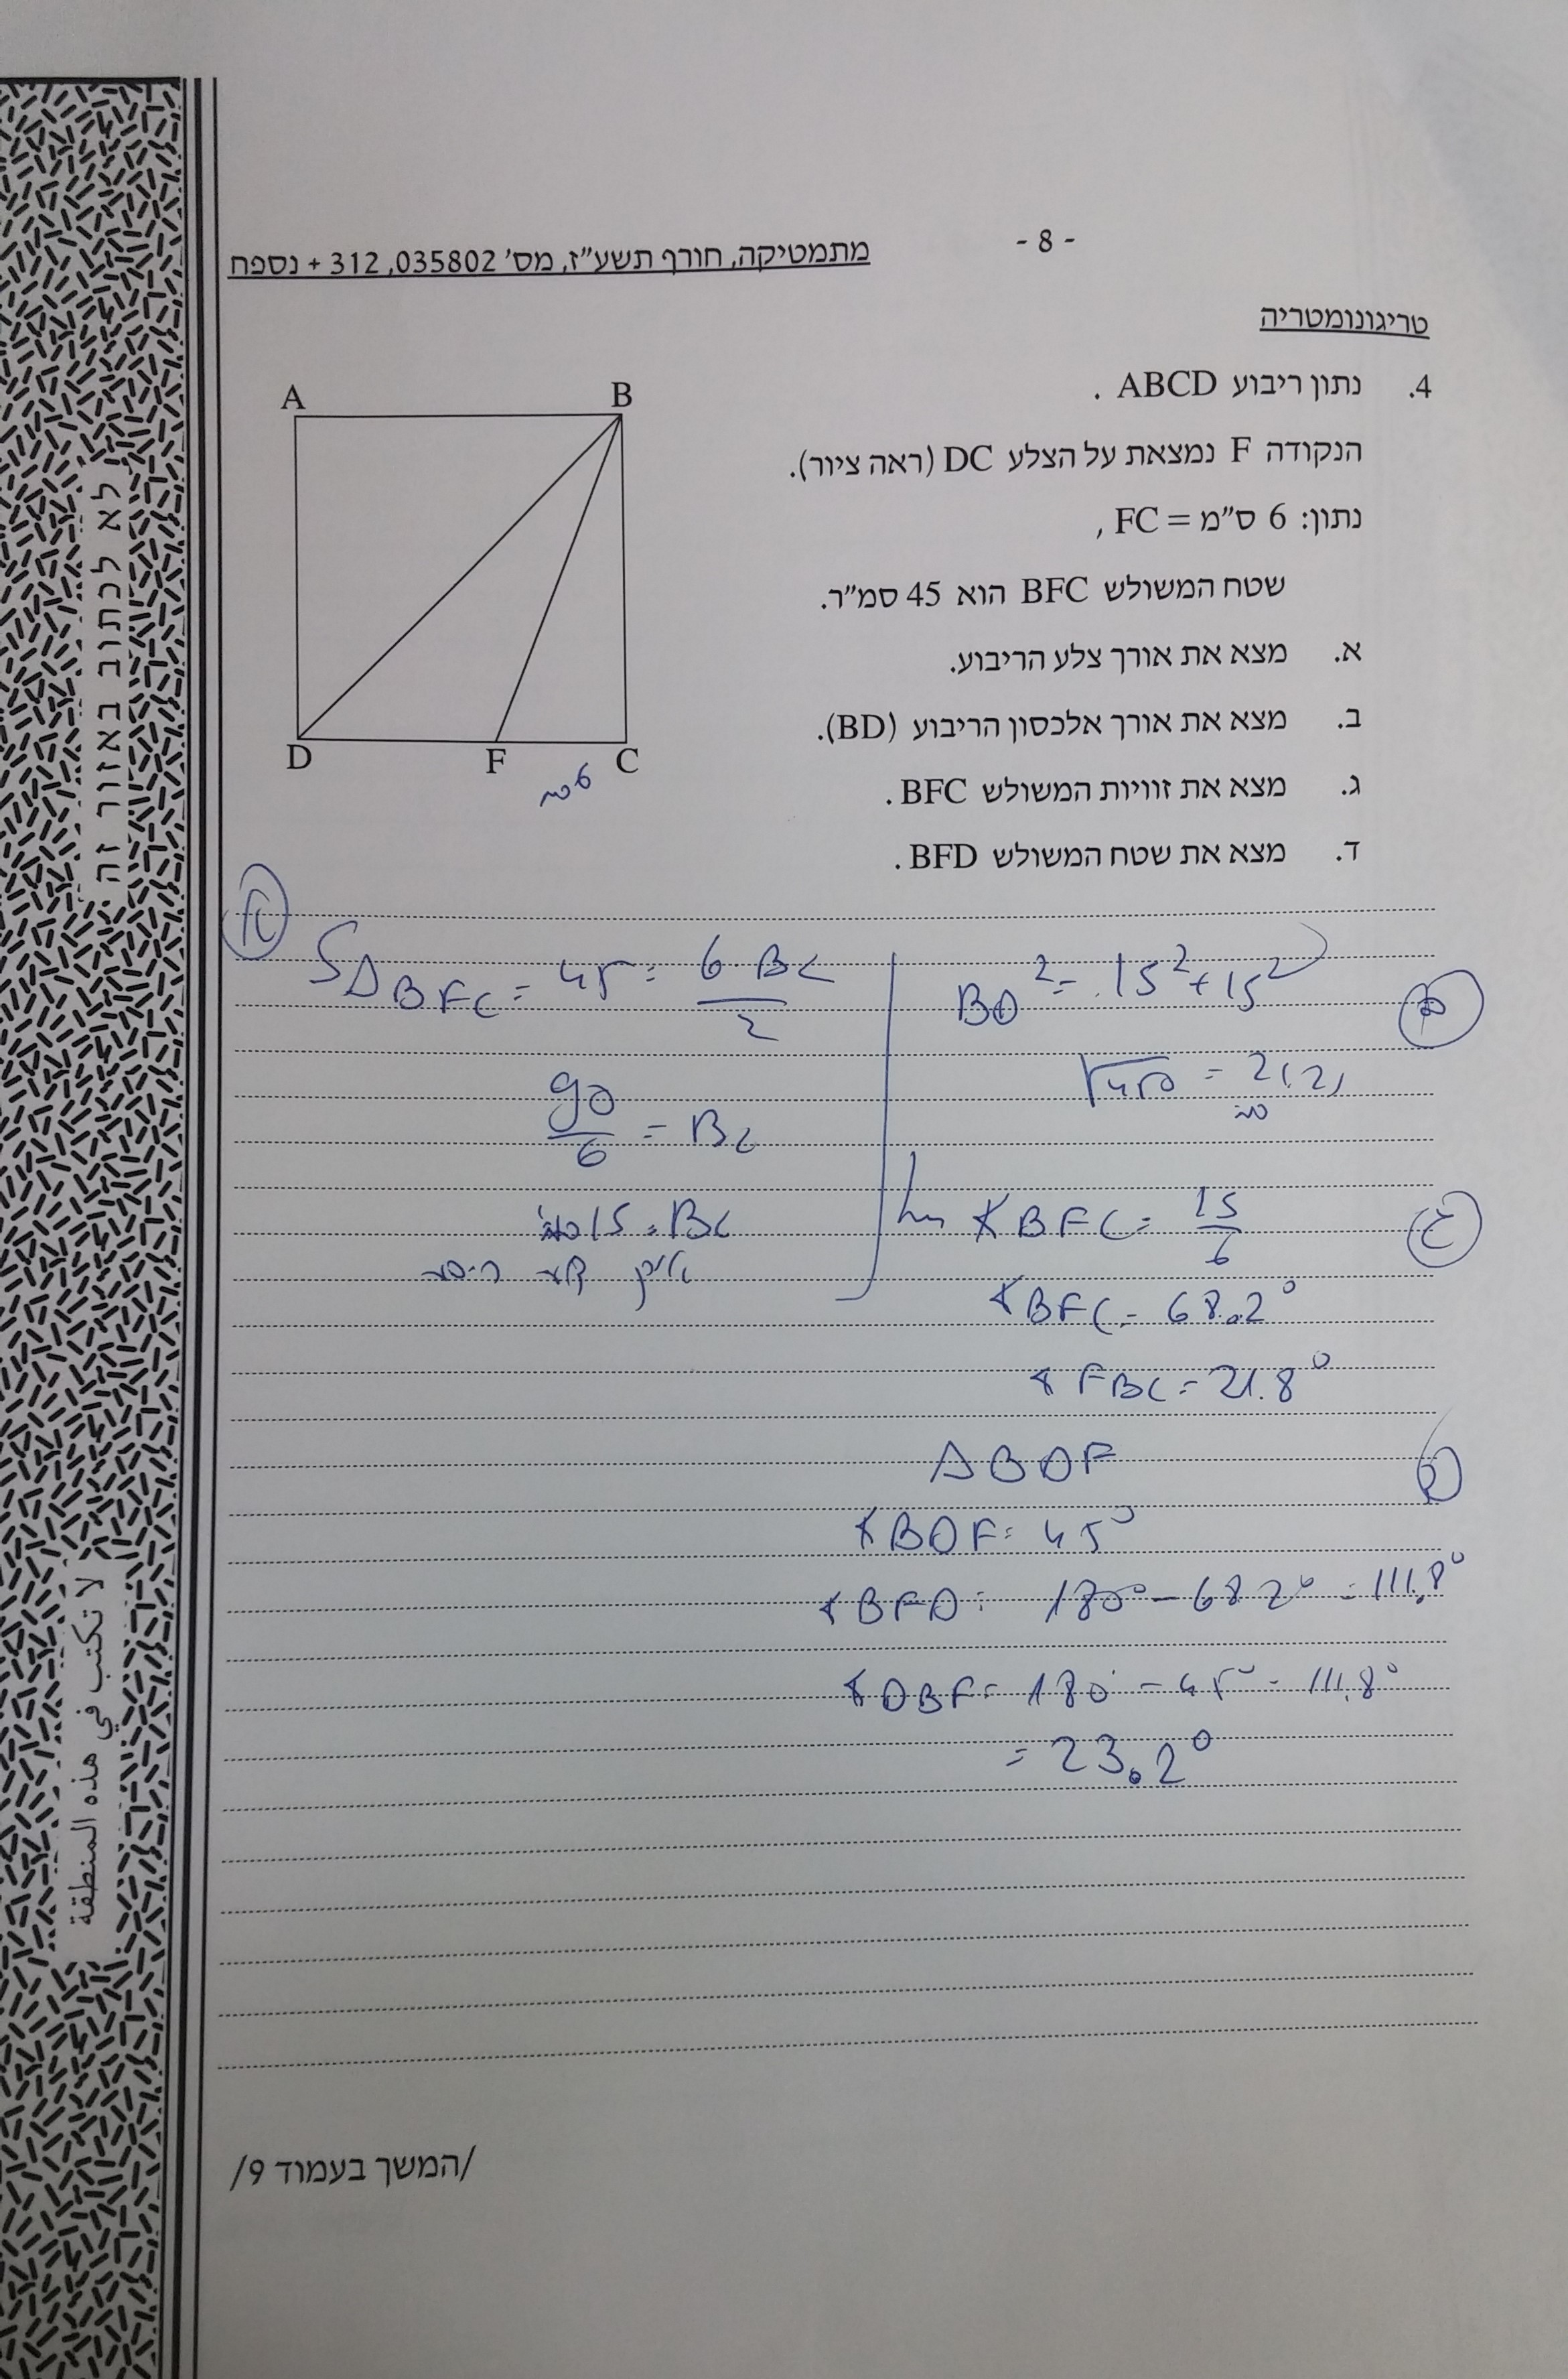 - 8 -
מתמטיקה, חורף תשע"ז, מס' 035802, 312 + נספח
טריגונומטריה
4. נתון ריבוע ABCD .
הנקודה F נמצאת על הצלע DC (ראה ציור).
נתון: 6 ס"מ = FC ,
שטח המשולש BFC הוא 45 סמ"ר.
א. מצא את אורך צלע הריבוע.
ב. מצא את אורך אלכסון הריבוע (BD).
ג. מצא את זוויות המשולש BFC .
ד. מצא את שטח המשולש BFD .
A B
D F C
6 ס"מ
א
S△BFC = 45 = 6·BC / 2
90/6 = BC
15 = BC
אורך צלע
ב
BD² = 15² + 15²
√450 = 21.21
ס"מ
ג
∢BFC = 15/6
∢BFC = 68.2°
∢FBC = 21.8°
ד
△BDF
∢BDF = 45°
∢BFD = 180° - 68.2° = 111.8°
∢DBF = 180° - 45° - 111.8°
= 23.2°
/המשך בעמוד 9/
לא לכתוב באזור זה
لا تكتب في هذه المنطقة